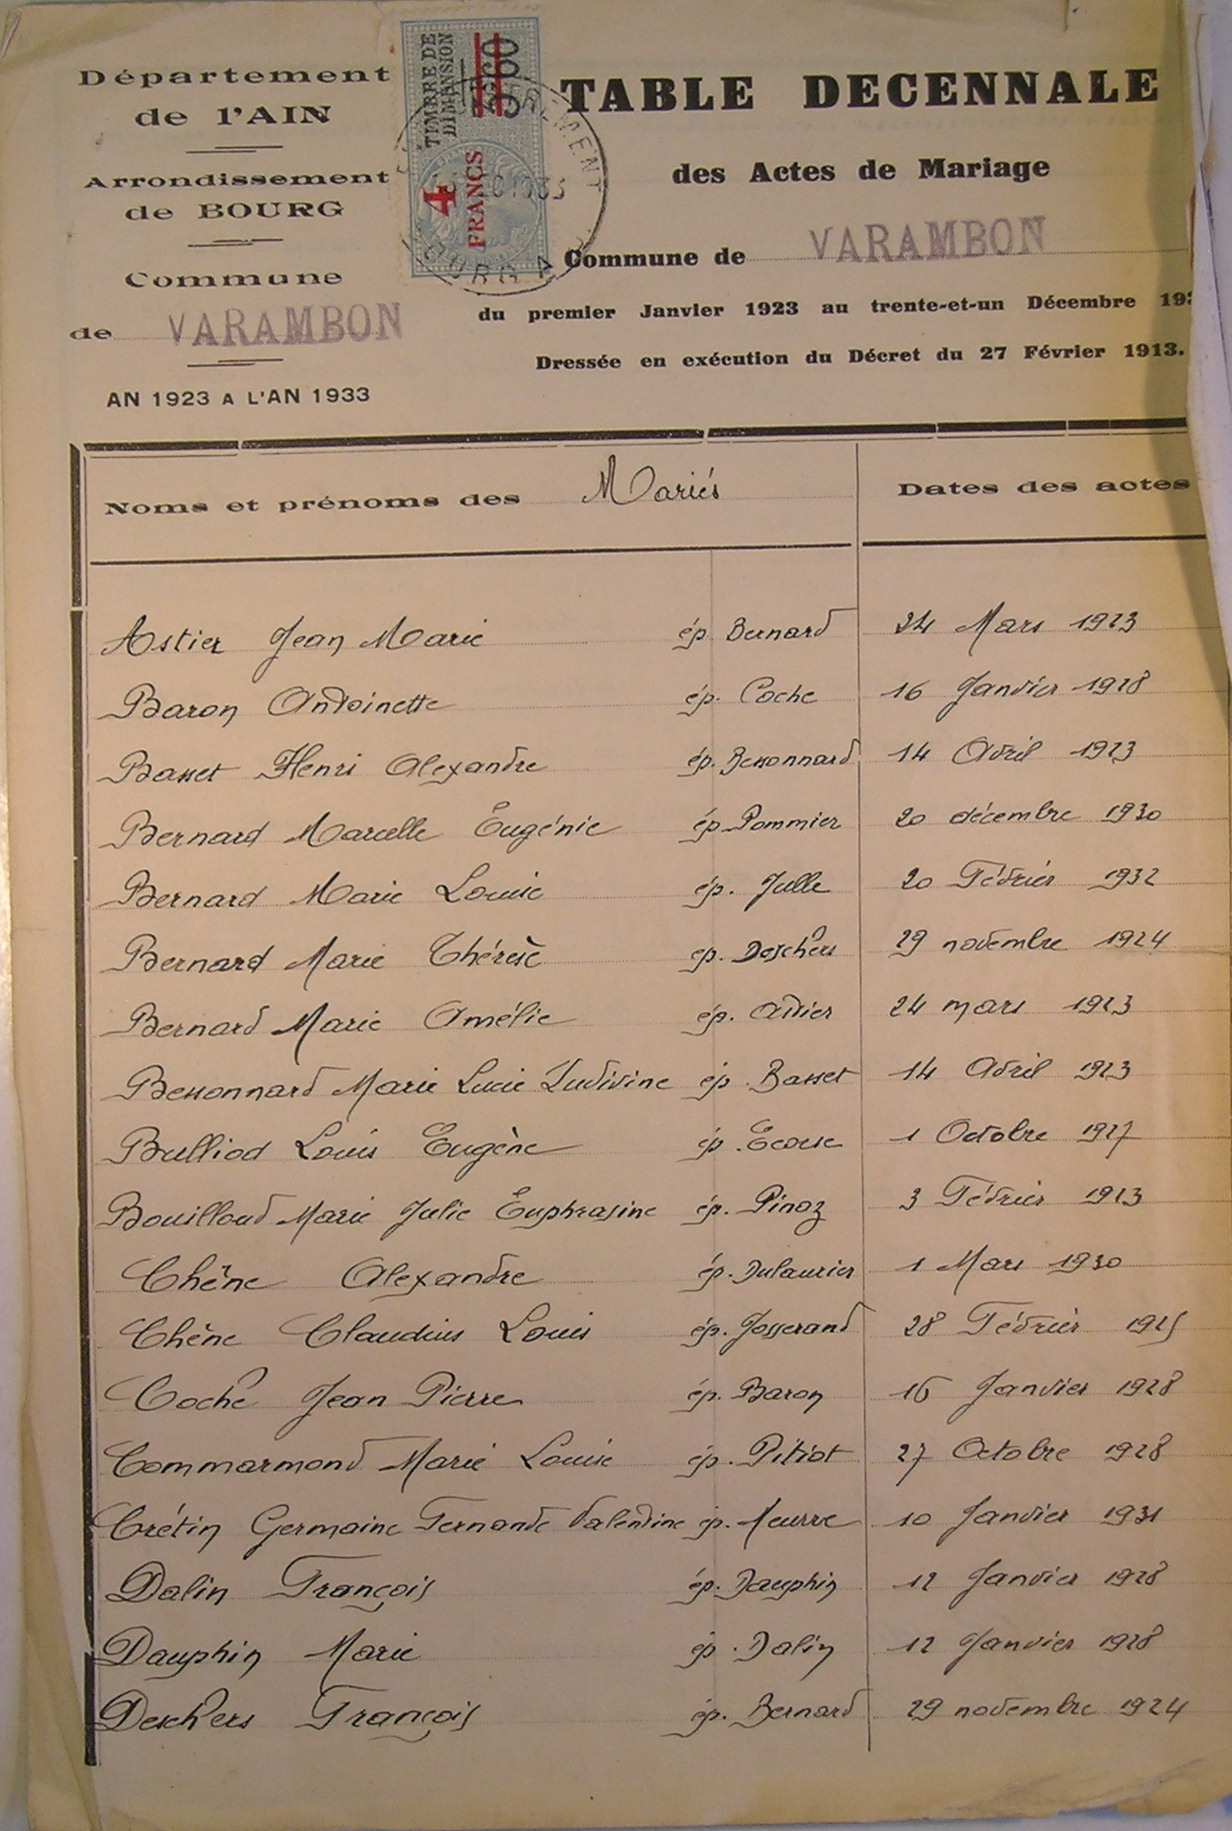 Département
de l'AIN
Arrondissement
de BOURG
Commune
de VARAMBON
AN 1923 A L'AN 1933
TIMBRE DE
DIMENSION
4
FRANCS
TABLE DECENNALE
des Actes de Mariage
Commune de VARAMBON
du premier Janvier 1923 au trente-et-un Décembre 193
Dressée en exécution du Décret du 27 Février 1913.
Noms et prénoms des Mariés Dates des actes
Astier Jean Marie ép. Bernard 24 Mars 1923
Baron Antoinette ép. Coche 16 Janvier 1928
Basset Henri Alexandre ép. Bessonnard 14 Avril 1923
Bernard Marcelle Eugénie ép. Pommier 20 décembre 1930
Bernard Marie Louise ép. Julle 20 Février 1932
Bernard Marie Thérèse ép. Deschers 29 novembre 1924
Bernard Marie Amélie ép. Astier 24 mars 1923
Bessonnard Marie Lucie Ludivine ép. Basset 14 Avril 1923
Bulliod Louis Eugène ép. Ecorse 1 Octobre 1927
Bouilloud Marie Julie Euphrasine ép. Pinoz 3 Février 1923
Chêne Alexandre ép. Dulaurier 1 Mars 1930
Chêne Claudius Louis ép. Josserand 28 Février 1925
Coche Jean Pierre ép. Baron 16 Janvier 1928
Commarmond Marie Louise ép. Pitiot 27 Octobre 1928
Crétin Germaine Fernande Valentine ép. Meurve 10 Janvier 1931
Dalin François ép. Dauphin 12 Janvier 1928
Dauphin Marie ép. Dalin 12 Janvier 1928
Deschers François ép. Bernard 29 novembre 1924